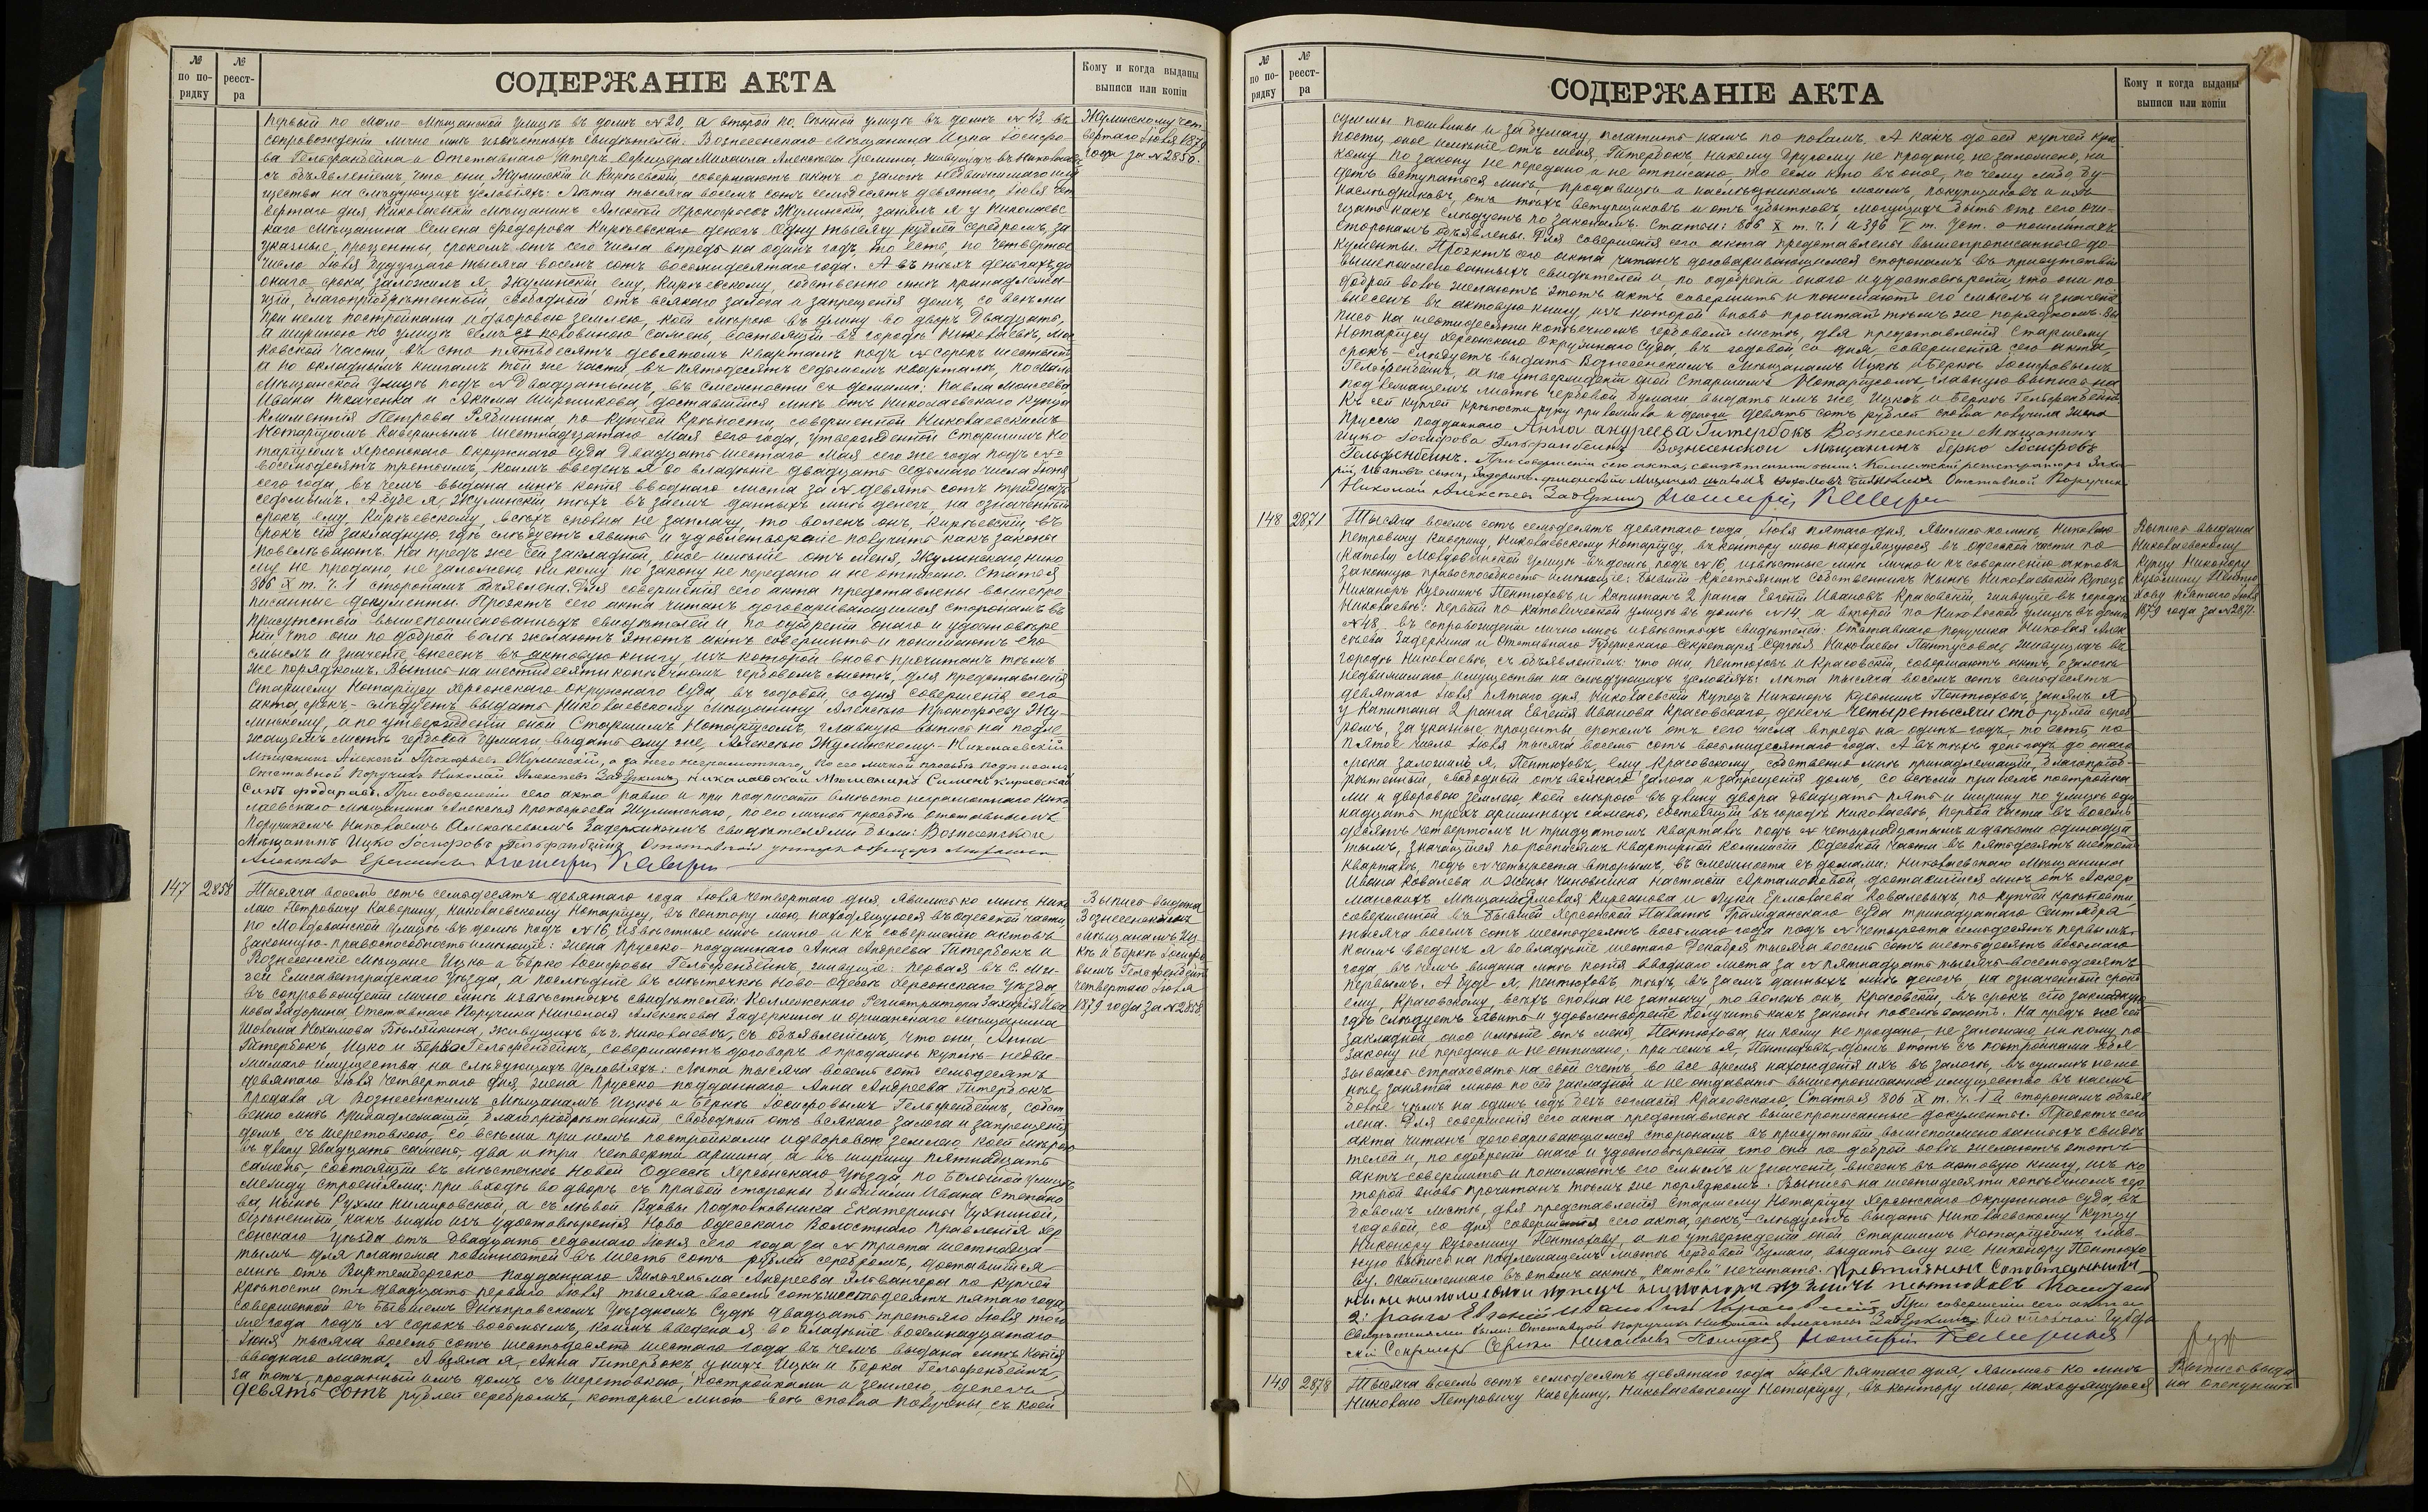 № по по-рядку
№ реест-ра
СОДЕРЖАНІЕ АКТА
Кому и когда выданы выписи или копіи
первый по Мало-Мѣщанской улицѣ въ домѣ №20, а второй по Спасной улицѣ въ домѣ №43, въ
сопровожденіи лично мнѣ извѣстныхъ свидѣтелей: Вознесенскаго Мѣщанина Ицка Іосифо-
ва Гельфанбейна и Отставнаго Унтеръ-Офицера Михаила Алексѣева Еремина, живущихъ въ Николаевѣ
съ объявленіемъ, что они, Жулинскій и Кирьевскій, совершаютъ актъ о залогѣ недвижимаго иму
щества на слѣдующихъ условіяхъ: Лѣта тысяча восемь сотъ семьдесятъ девятаго, Іюля чет
вертаго дня, Николаевскій Мѣщанинъ Алексѣй Прокофьевъ Жулинскій, занялъ я у Николаевс
каго Мѣщанина Семена Федорова Кирьевскаго денегъ одну тысячу рублей серебромъ, за
указные проценты, срокомъ отъ сего числа впредь на одинъ годъ, то есть, по четвертое
число Іюля будущаго тысяча восемь сотъ восьмидесятаго года. А въ тѣхъ деньгахъ до
онаго срока, заложилъ я, Жулинскій, ему, Кирьевскому, собственно мнѣ принадлежа-
щій, благопріобрѣтенный, свободный отъ всякаго залога и запрещенія домъ, со всѣми
при немъ постройками и дворовою землею, коей мѣрою въ длину во дворъ двадцать,
а шириною по улицѣ семь съ половиною саженъ, состоящій въ городѣ Николаевѣ, Мос
ковской части, въ сто пятьдесятъ девятомъ кварталѣ подъ № сорокъ шестымъ
а по окладнымъ книгамъ той же части, въ пятьдесятъ седьмомъ кварталѣ, по Мало
Мѣщанской улицѣ подъ № двадцатымъ, въ смежности съ домами: Павла Моисеева
Ивана Ткаченка и Якима Ширшикова, доставшійся мнѣ отъ Николаевскаго купца
Климентія Петрова Рябинина, по купчей крѣпости, совершенной Николаевскимъ
Нотаріусомъ Каверинымъ шестнадцатаго Мая сего года, утвержденной Старшимъ Но
таріусомъ Херсонскаго Окружнаго Суда двадцать шестаго Мая сего же года подъ №
восемьдесятъ третьимъ, коимъ введенъ я во владѣніе двадцать седьмаго числа Іюня
сего года, въ чемъ выдана мнѣ копія вводнаго листа за № девять сотъ тридцать
седьмымъ. А буде я, Жулинскій, тѣхъ въ заемъ данныхъ мнѣ денегъ, на означенный
срокъ, ему, Кирьевскому, всѣхъ сполна не заплачу, то воленъ онъ, Кирьевскій, въ
срокъ сію закладную, гдѣ слѣдуетъ явить и удовлетвореніе получить какъ законы
повелѣваютъ. На предь же сей закладной, оное имѣніе отъ меня, Жулинскаго, нико
му не продано, не заложено, ни кому по закону не передано и не отписано. Статья
806 X т. ч. 1 сторонамъ объявлена. Для совершенія сего акта представлены вышепро
писанные документы. Проэктъ сего акта читанъ договаривающимся сторонамъ въ
присутствіи вышепоименованныхъ свидѣтелей и, по одобреніи онаго и удостовѣре
ніи что они по доброй волѣ желаютъ этотъ актъ совершить и понимаютъ его
смыслъ и значеніе внесенъ въ актовую книгу, изъ которой вновь прочитанъ тѣмъ
же порядкомъ. Выпись на шестидесяти копѣечномъ гербовомъ листѣ, для представленія
Старшему Нотаріусу Херсонскаго Окружнаго Суда, въ годовой, со дня совершенія сего
акта, срокъ,- слѣдуетъ выдать Николаевскому Мѣщанину Алексѣю Прокофьеву Жу-
линскому, а по утвержденіи оной Старшимъ Нотаріусомъ, главную выпись на подле
жащемъ листѣ гербовой бумаги, выдать ему же, Алексѣю Жулинскому. Николаевскій
Мѣщанинъ Алексѣй Прокофьевъ Жулинскій, а за него неграмотнаго, по его личной просьбѣ подписалъ
Отставной Поручикъ Николай Алексѣевъ Задеркинъ, Николаевской Мѣщанинъ Симіонъ Кирьевскій
Сынъ Федоровъ. При совершеніи сего акта равно и при подписаніи вмѣсто неграмотнаго Нико
лаевскаго Мѣщанина Алексѣя Прокофьева Жулинскаго, по его личной просьбѣ Отставнымъ
Поручикомъ Николаемъ Алексѣевымъ Задеркинымъ свидѣтелями были: Вознесенскій
Мѣщанинъ Ицко Іосифовъ Гельфанбейнъ, Отставной унтеръ офицеръ Михаилъ
Алексѣевъ Ереминъ Нотаріусъ Каверинъ
Жулинскому чет
вертаго Іюля 1879
года за №2850.
147 2858
Тысяча восемь сотъ семьдесятъ девятаго года Іюля четвертаго дня, явились ко мнѣ, Нико
лаю Петровичу Каверину, Николаевскому Нотаріусу, въ контору мою, находящуюся въ Одесской части,
по Молдованской улицѣ въ домѣ подъ №16, извѣстные мнѣ лично и къ совершенію актовъ
законную правоспособность имѣющіе: жена Прусско-подданнаго Анна Андреева Гитербокъ и
Вознесенскіе Мѣщане Ицко и Берко Іосифовы Гельфенбейнъ, живущіе: первая въ С. Ми-
гей Елисаветградскаго уѣзда, а послѣдніе въ мѣстечкѣ Ново-Одессѣ Херсонскаго уѣзда
въ сопровожденіи лично мнѣ извѣстныхъ свидѣтелей: Коллежскаго Регистратора Захарія Ива
нова Задорина, Отставнаго Поручика Николая Алексѣева Задеркина и Оршанскаго Мѣщанина
Шолома Нохимова Биляйкина, живущихъ въ г. Николаевѣ, съ объявленіемъ, что они, Анна
Гитербокъ, Ицко и Берко Гельфенбейнъ, совершаютъ договоръ о продажѣ куплѣ недви-
жимаго имущества на слѣдующихъ условіяхъ: Лѣта тысяча восемь сотъ семьдесятъ
девятаго Іюля четвертаго дня жена Прусско подданнаго Анна Андреева Гитербокъ
продала я Вознесенскимъ Мѣщанамъ Ицкѣ и Беркѣ Іосифовымъ Гельфенбейнъ, собст
венно мнѣ принадлежащій, благопріобрѣтенный, свободный отъ всякаго залога и запрещенія
домъ съ шеретовкою, со всѣми при немъ постройками и дворовою землею коей мѣрою
въ длину двадцать саженъ, два и три четверти аршина, а въ ширину пятнадцать
саженъ, состоящій въ мѣстечкѣ Новой Одессѣ Херсонскаго уѣзда, по Большой улицѣ
между строеніями: при входѣ во дворъ съ правой стороны бывшими Ивана Степано
ва, нынѣ Рухли Нимировской, а съ лѣвой Вдовы Подполковника Екатерины Чухниной,
оцѣненный, какъ видно изъ удостовѣренія Ново Одесскаго Волостнаго Правленія Хер
сонскаго уѣзда отъ двадцать седьмаго Іюня сего года за № триста шестнадца-
тымъ для платежа повинностей въ шесть сотъ рублей серебромъ, доставшійся
мнѣ отъ Виртембергско подданнаго Вильгельма Андреева Эльвангера по купчей
крѣпости отъ двадцать перваго Іюля тысяча восемь сотъ шестьдесятъ пятаго года,
совершенной въ бывшемъ Днѣпровскомъ Уѣздномъ Судѣ двадцать третьяго Іюля того
же года подъ № сорокъ восьмымъ, коимъ введена я во владѣніе восемнадцатаго
Іюня тысяча восемь сотъ шестьдесятъ шестаго года въ чемъ выдана мнѣ копія
вводнаго листа. А взяла я, Анна Гитербокъ у нихъ Ицки и Берки Гельфенбейнъ,
за тотъ, проданный имъ домъ съ шеретовкою, постройками и землею, денегъ
девять сотъ рублей серебромъ, которые мною всѣ сполна получены, съ коей
Выпись выдана
Вознесенскимъ
Мѣщанамъ Иц-
кѣ и Беркѣ Іосифо
вымъ Гельфенбейнъ
четвертаго Іюля
1879 года за №2858.
№ по по-рядку
№ реест-ра
СОДЕРЖАНІЕ АКТА
Кому и когда выданы выписи или копіи
суммы пошлины и за бумагу, платить намъ по поламъ. А какъ до сей купчей крѣ-
пости, оное имѣніе отъ меня, Гитербокъ, никому другому не продано, не заложено, ни
кому по закону не передано и не отписано, то если кто въ оное, по чему либо, бу-
детъ вступаться мнѣ, продавицѣ и наслѣдникамъ моимъ, покупщиковъ и ихъ
наслѣдниковъ, отъ тѣхъ вступщиковъ и отъ убытковъ, могущихъ быть отъ сего, очи-
щать какъ слѣдуетъ по законамъ. Статьи: 806 X т. ч. 1 и 396 V т. Уст. о пошлинахъ
сторонамъ объявлены. Для совершенія сего акта представлены вышепрописанные до-
кументы. Проэктъ сего акта читанъ договаривающимся сторонамъ въ присутствіи
вышепоименованныхъ свидѣтелей и, по одобреніи онаго и удостовѣреніи, что они по
доброй волѣ желаютъ этотъ актъ совершить и понимаютъ его смыслъ и значеніе
внесенъ въ актовую книгу, изъ которой вновь прочитанъ тѣмъ же порядкомъ. Вы
пись на шестидесяти копѣечномъ гербовомъ листѣ, для представленія Старшему
Нотаріусу Херсонскаго Окружнаго Суда, въ годовой, со дня совершенія сего акта,
срокъ,- слѣдуетъ выдать Вознесенскимъ Мѣщанамъ Ицкѣ и Беркѣ Іосифовымъ
Гельфенбейнъ, а по утвержденіи оной Старшимъ Нотаріусомъ, главную выпись на
подлежащемъ листѣ гербовой бумаги выдать имъ же, Ицкѣ и Беркѣ Гельфенбейнъ
Къ сей купчей крѣпости руку приложила и деньги девять сотъ рублей сполна получила жена
Прусско подданнаго Анна Андреева Гитербокъ Вознесенской Мѣщанинъ
Ицко Іосифовъ Гельфанбейнъ Вознесенской Мѣщанинъ Берко Іосифовъ
Гельфенбейнъ. При совершеніи сего акта, свидѣтелями были: Коллежскій регистраторъ Заха
рій Ивановъ сынъ, Задоринъ, Оршанской Мѣщанинъ Шоломъ Нохимовъ Биляйкинъ Отставной Поручикъ
Николай Алексѣевъ Задеркинъ Нотаріусъ Каверинъ
148 2871
Тысяча восемь сотъ семьдесятъ девятаго года, Іюля пятаго дня, явились ко мнѣ, Николаю
Петровичу Каверину, Николаевскому Нотаріусу, въ контору мою находящуюся въ Одесской части по
(Катови) Молдованской улицѣ въ домѣ, подъ №16, извѣстные мнѣ лично и къ совершенію актовъ
законную правоспособность имѣющіе: бывшій Крестьянинъ Собственникъ нынѣ Николаевскій Купецъ
Никаноръ Кузьминъ Пентюховъ и Капитанъ 2 ранга Евгеній Ивановъ Красовскій, живущіе въ городѣ
Николаевѣ: первый по Католической улицѣ въ домѣ №14, а второй по Никольской улицѣ въ домѣ
№48, въ сопровожденіи лично мнѣ извѣстныхъ свидѣтелей: Отставнаго поручика Николая Алек
сѣева Задеркина и Отставнаго Губернскаго Секретаря Сергѣя Николаева Пантусова, живущихъ въ
городѣ Николаевѣ, съ объявленіемъ: что они, Пентюховъ и Красовскій, совершаютъ актъ о залогѣ
недвижимаго имущества на слѣдующихъ условіяхъ: Лѣта тысяча восемь сотъ семьдесятъ
девятаго Іюля пятаго дня, Николаевскій Купецъ Никаноръ Кузьминъ Пентюховъ, занялъ я
у Капитана 2 ранга Евгенія Иванова Красовскаго, денегъ четыре тысячи сто рублей сереб
ромъ, за указные проценты, срокомъ отъ сего числа впредь на одинъ годъ, то есть по
пятое число Іюля тысяча восемь сотъ восьмидесятаго года. А въ тѣхъ деньгахъ до онаго
срока заложилъ я, Пентюховъ, ему Красовскому, собственно мнѣ принадлежащій, благопріоб-
рѣтенный, свободный отъ всякаго залога и запрещенія домъ, со всѣми при немъ постройка
ми и дворовою землею, коей мѣрою въ длину двора двадцать пять и ширину по улицѣ оди
надцать трехъ аршинныхъ саженъ, состоящій въ городѣ Николаевѣ, первой части въ восемь
десятъ четвертомъ и тридцатомъ кварталѣ подъ № четырнадцатымъ и двѣсти одинадца
тымъ, значащійся по росписямъ Квартирной Коммисіи Одесской части въ пятьдесятъ шестомъ
кварталѣ, подъ № четыреста вторымъ, въ смежности съ домами: Николаевскаго Мѣщанина
Ивана Ковалева и жены чиновника Настасіи Артамоновой, доставшійся мнѣ отъ Аккер
манскихъ Мѣщанъ Ермолая Кирсанова и Луки Ермолаева Ковалевыхъ, по купчей крѣпости
совершенной въ бывшей Херсонской Палатѣ Гражданскаго Суда тринадцатаго Сентября
тысяча восемь сотъ шестьдесятъ восьмаго года подъ № четыреста семьдесятъ первымъ.
коимъ введенъ я во владѣніе шестаго Декабря тысяча восемь сотъ шестьдесятъ восьмаго
года, въ чемъ выдана мнѣ копія вводнаго листа за № пятнадцать тысячъ восемьдесятъ
первымъ. А буде я, Пентюховъ, тѣхъ, въ заемъ данныхъ мнѣ денегъ, на означенный срокъ
ему, Красовскому, всѣхъ сполна не заплачу, то воленъ онъ, Красовскій, въ срокъ сію закладную
гдѣ слѣдуетъ явить и удовлетвореніе получить какъ законы повелѣваютъ. На предь же сей
закладной, оное имѣніе отъ меня Пентюхова, ни кому не продано, не заложено, ни кому, по
закону не передано и не отписано; при чемъ я, Пентюховъ, домъ этотъ съ постройками обя
зываюсь страховать на свой счетъ, во все время нахожденія ихъ въ залогѣ, въ суммѣ не ме
нѣе, занятой мною по сей закладной и не отдавать вышепрописанное имущество въ наемъ
болѣе чѣмъ на одинъ годъ безъ согласія Красовскаго. Статья 806 X т. ч. 1 й сторонамъ объяв
лена. Для совершенія сего акта представлены вышепрописанные документы. Проэктъ сего
акта читанъ договаривающимся сторонамъ въ присутствіи вышепоименованныхъ свидѣ
телей и, по одобреніи онаго и удостовѣреніи что они по доброй волѣ желаютъ этотъ
актъ совершить и понимаютъ его смыслъ и значеніе, внесенъ въ актовую книгу, изъ ко
торой вновь прочитанъ тѣмъ же порядкомъ. Выпись на шестидесяти копѣечномъ гер
бовомъ листѣ, для представленія Старшему Нотаріусу Херсонскаго Окружнаго Суда, въ
годовой, со дня совершенія сего акта, срокъ,- слѣдуетъ выдать Николаевскому купцу
Никанору Кузьмину Пентюхову, а по утвержденіи оной Старшимъ Нотаріусомъ, глав-
ную выпись на подлежащемъ листѣ гербовой бумаги, выдать ему же, Никанору Пентюхо
ву. Окаймленнаго въ этомъ актѣ „Катови" нечитать. Крестьянинъ Собственникъ
нынѣ николаевской купецъ никаноръ кузминъ пентюховъ Капитанъ
2 ранга Евгеній Ивановъ Красовскій При совершеніи сего акта
свидѣтелями были: Отставной Поручикъ Николай Алексѣевъ Задеркинъ, Отставной Губерн
скій Секретарь Сергѣй Николаевъ Нотаріусъ Каверинъ
Выпись выдана
Николаевскому
Купцу Никанору
Кузьмину Пентю
хову пятаго Іюля
1879 года за №2871.
149 2878
Тысяча восемь сотъ семьдесятъ девятаго года Іюля пятаго дня, явились ко мнѣ
Николаю Петровичу Каверину, Николаевскому Нотаріусу, въ контору мою, находящуюся
Выпись выда
на опекуншѣ